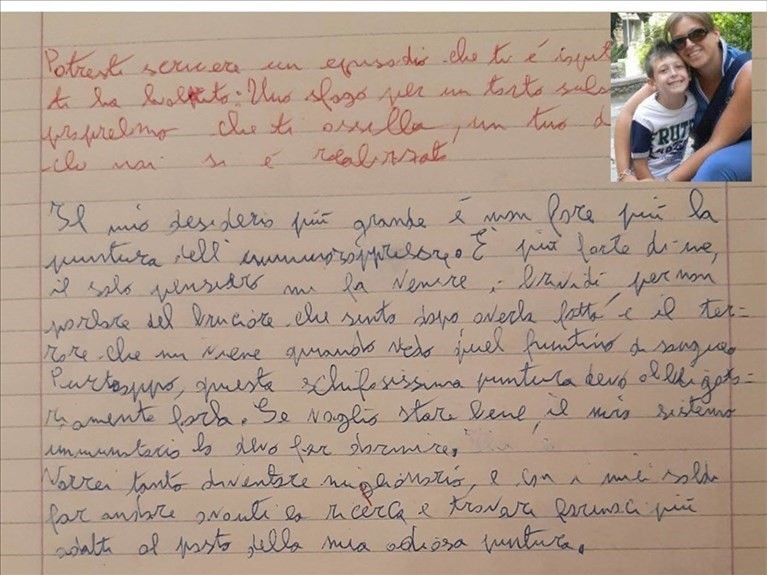 Potresti scrivere un episodio che ti è
ti ha : Uno sfogo per un torto
che ti assilla, un tuo
che mai si è realizzato
Il mio desiderio più grande è non fare più la
puntura dell' immunosoppressore. È più forte di me,
il solo pensiero mi fa venire i brividi per non
parlare del bruciore che sento dopo averla fatta e il ter=
rore che mi viene quando vedo quel puntino di sangue.
Purtroppo, questa schifosissima puntura devo obbligato=
riamente farla. Se voglio stare bene, il mio sistema
immunitario lo devo far dormire.
Vorrei tanto diventare miglionario, e con i miei soldi
far andare avanti la ricerca e trovare farmaci più
adatti al posto della mia odiosa puntura.
FRUIT